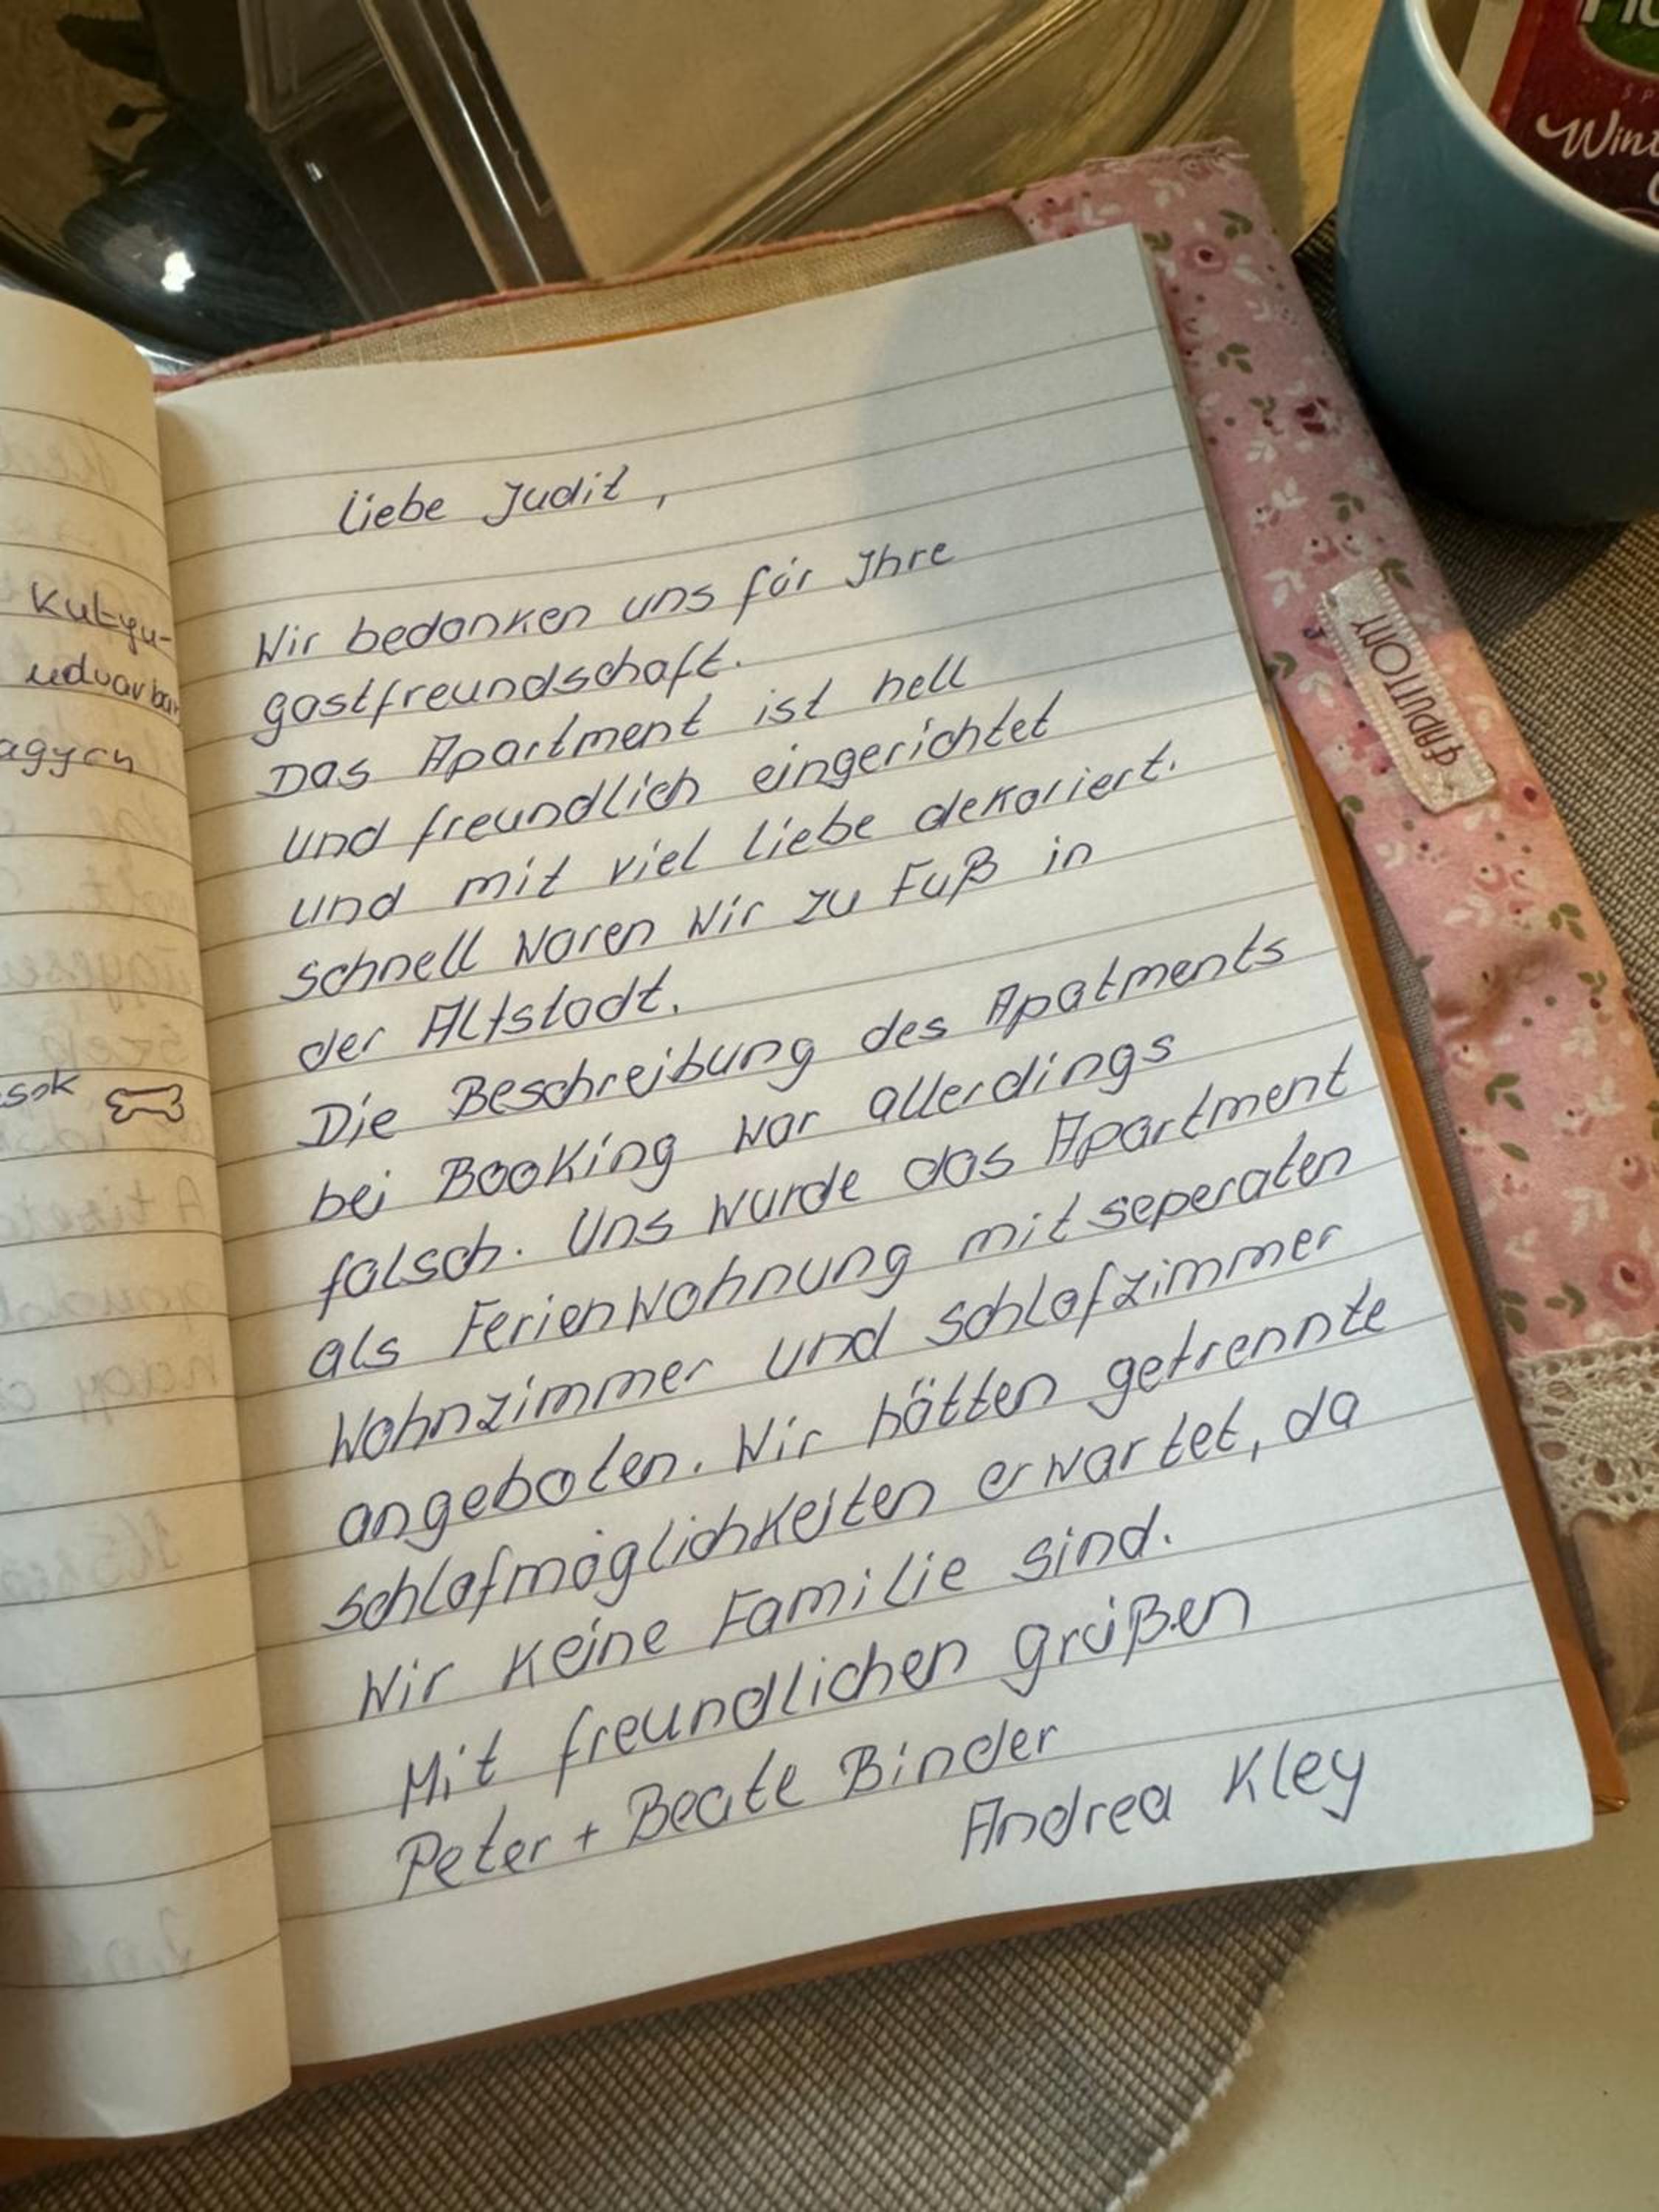 Kutyu-
udvarban
agyon
sok
Liebe Judit,
Wir bedanken uns für Ihre
gastfreundschaft.
Das Apartment ist hell
und freundlich eingerichtet
und mit viel Liebe dekoriert.
Schnell waren wir zu Fuß in
der Altstadt.
Die Beschreibung des Apatments
bei Booking war allerdings
falsch. Uns wurde das Apartment
als Ferienwohnung mit seperaten
Wohnzimmer und Schlafzimmer
angeboten. Wir hätten getrennte
Schlafmöglichkeiten erwartet, da
wir keine Familie sind.
Mit freundlichen grüßen
Peter + Beate Binder
Andrea Kley
TAPUTTONY
Wint